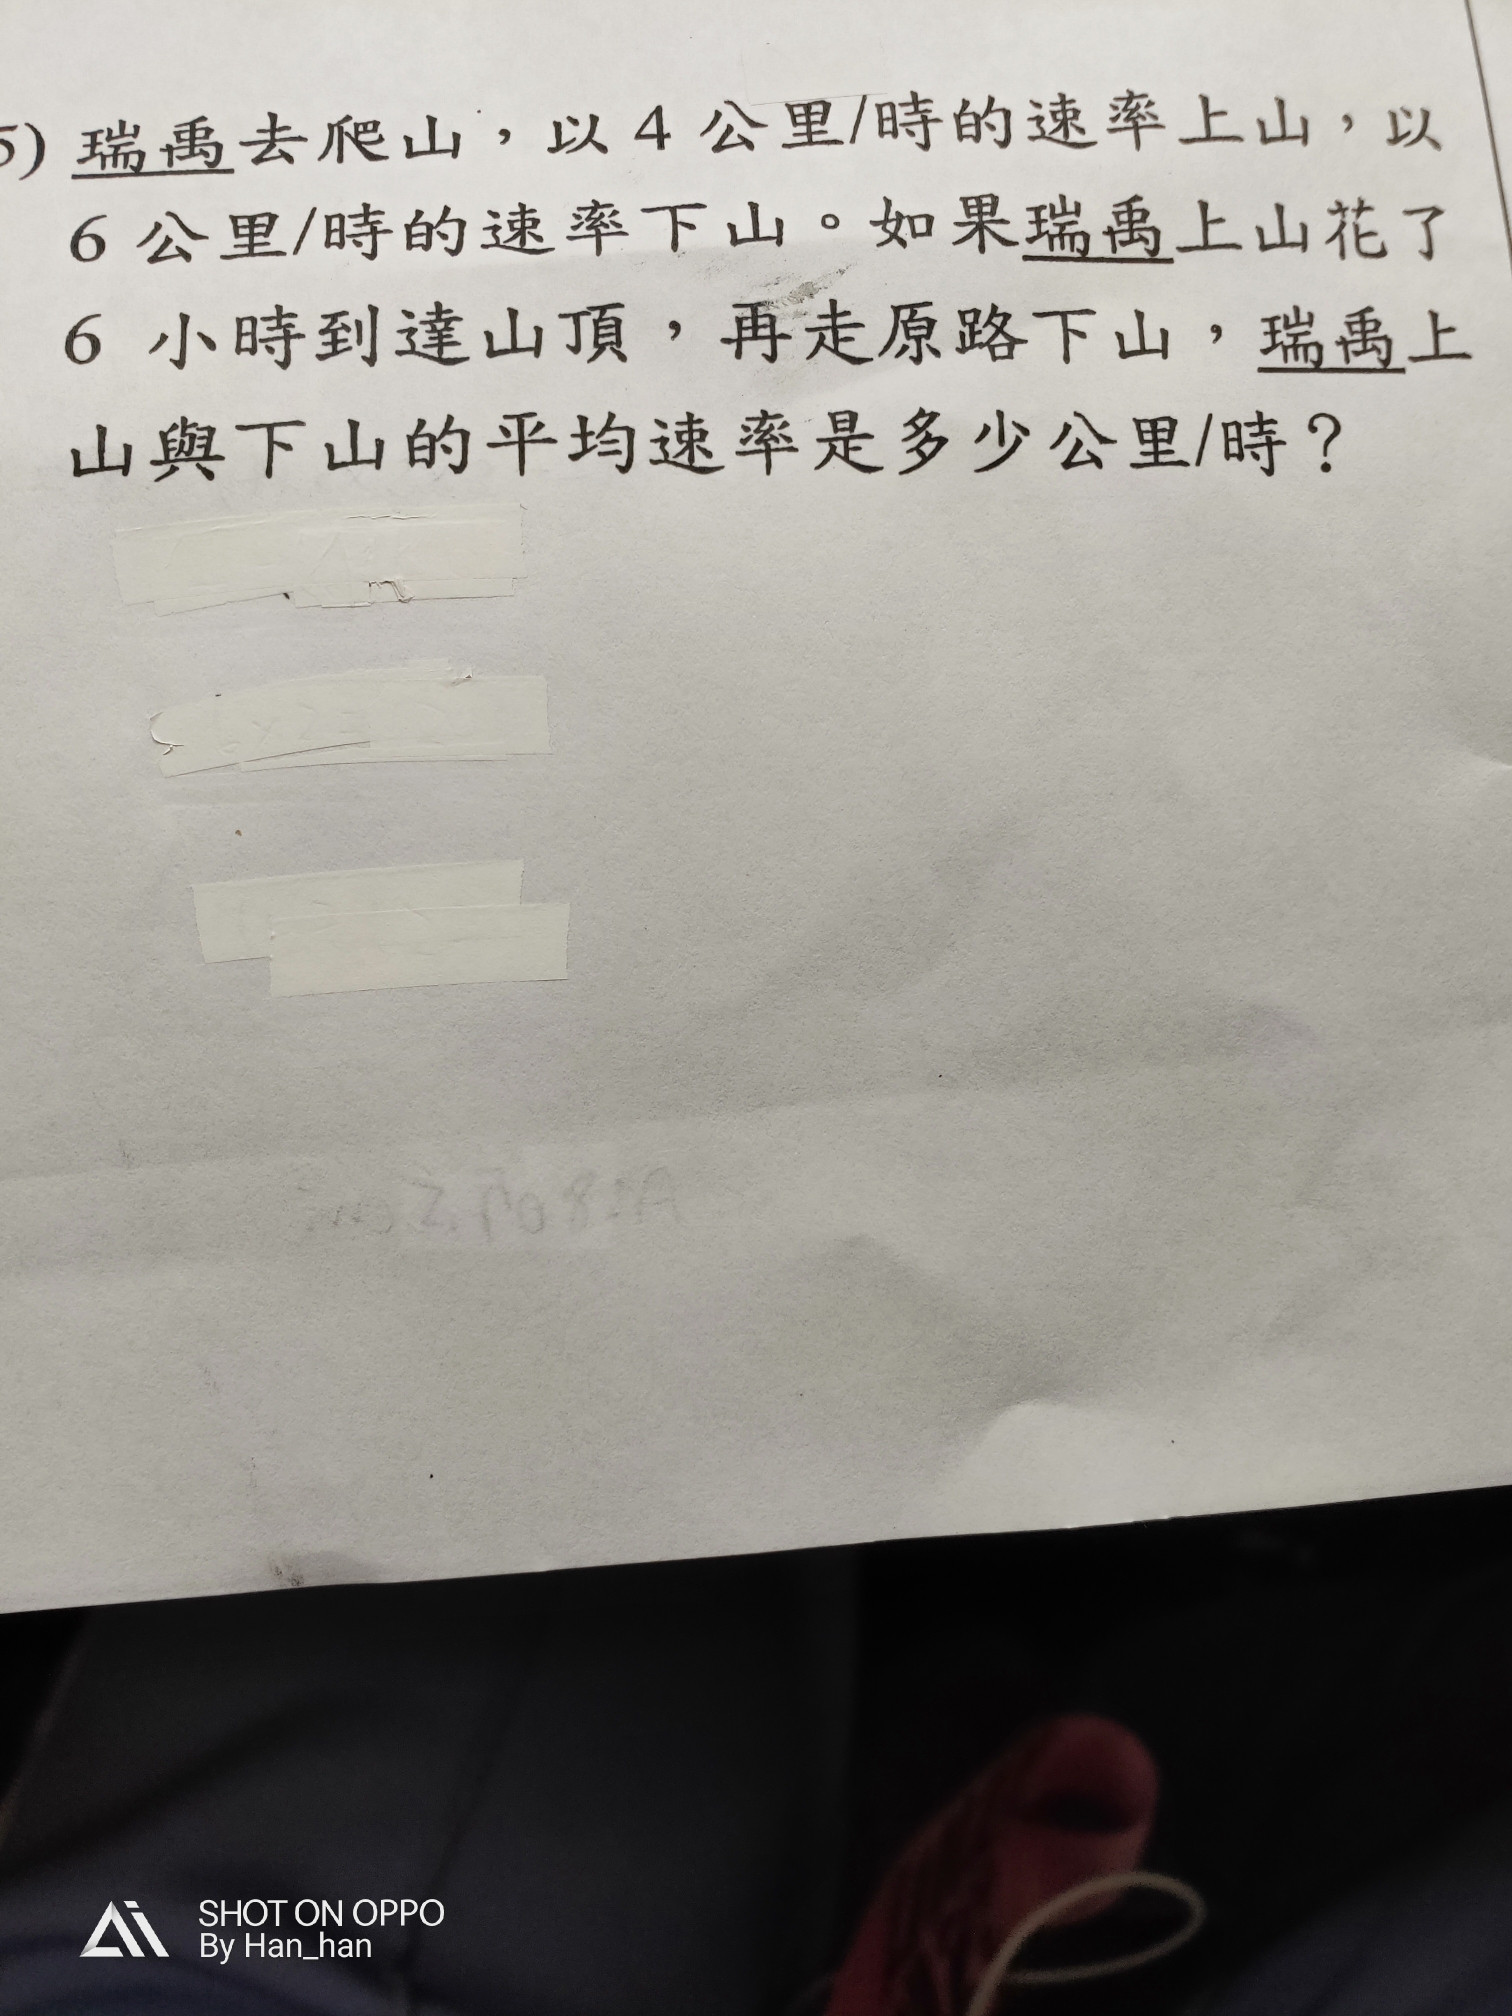 5) 瑞禹去爬山，以 4 公里/時的速率上山，以
6 公里/時的速率下山。如果瑞禹上山花了
6 小時到達山頂，再走原路下山，瑞禹上
山與下山的平均速率是多少公里/時？
SHOT ON OPPO
By Han_han